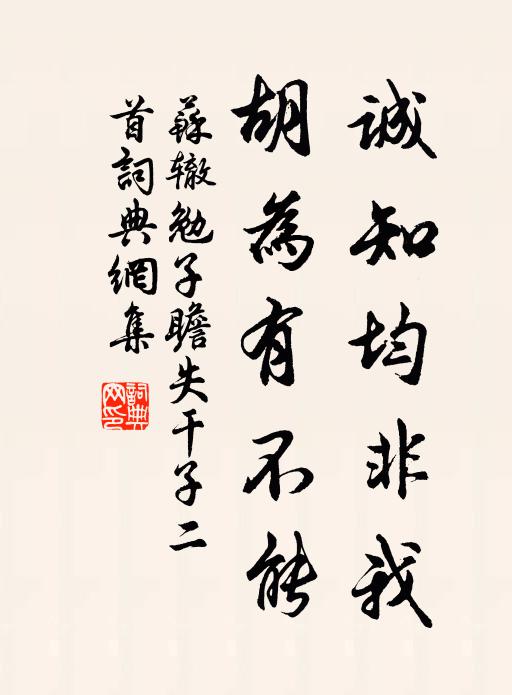 誠知均非我
胡為有不能
蘇轍勉子瞻失干子二
首詞典網集
詞典
网印